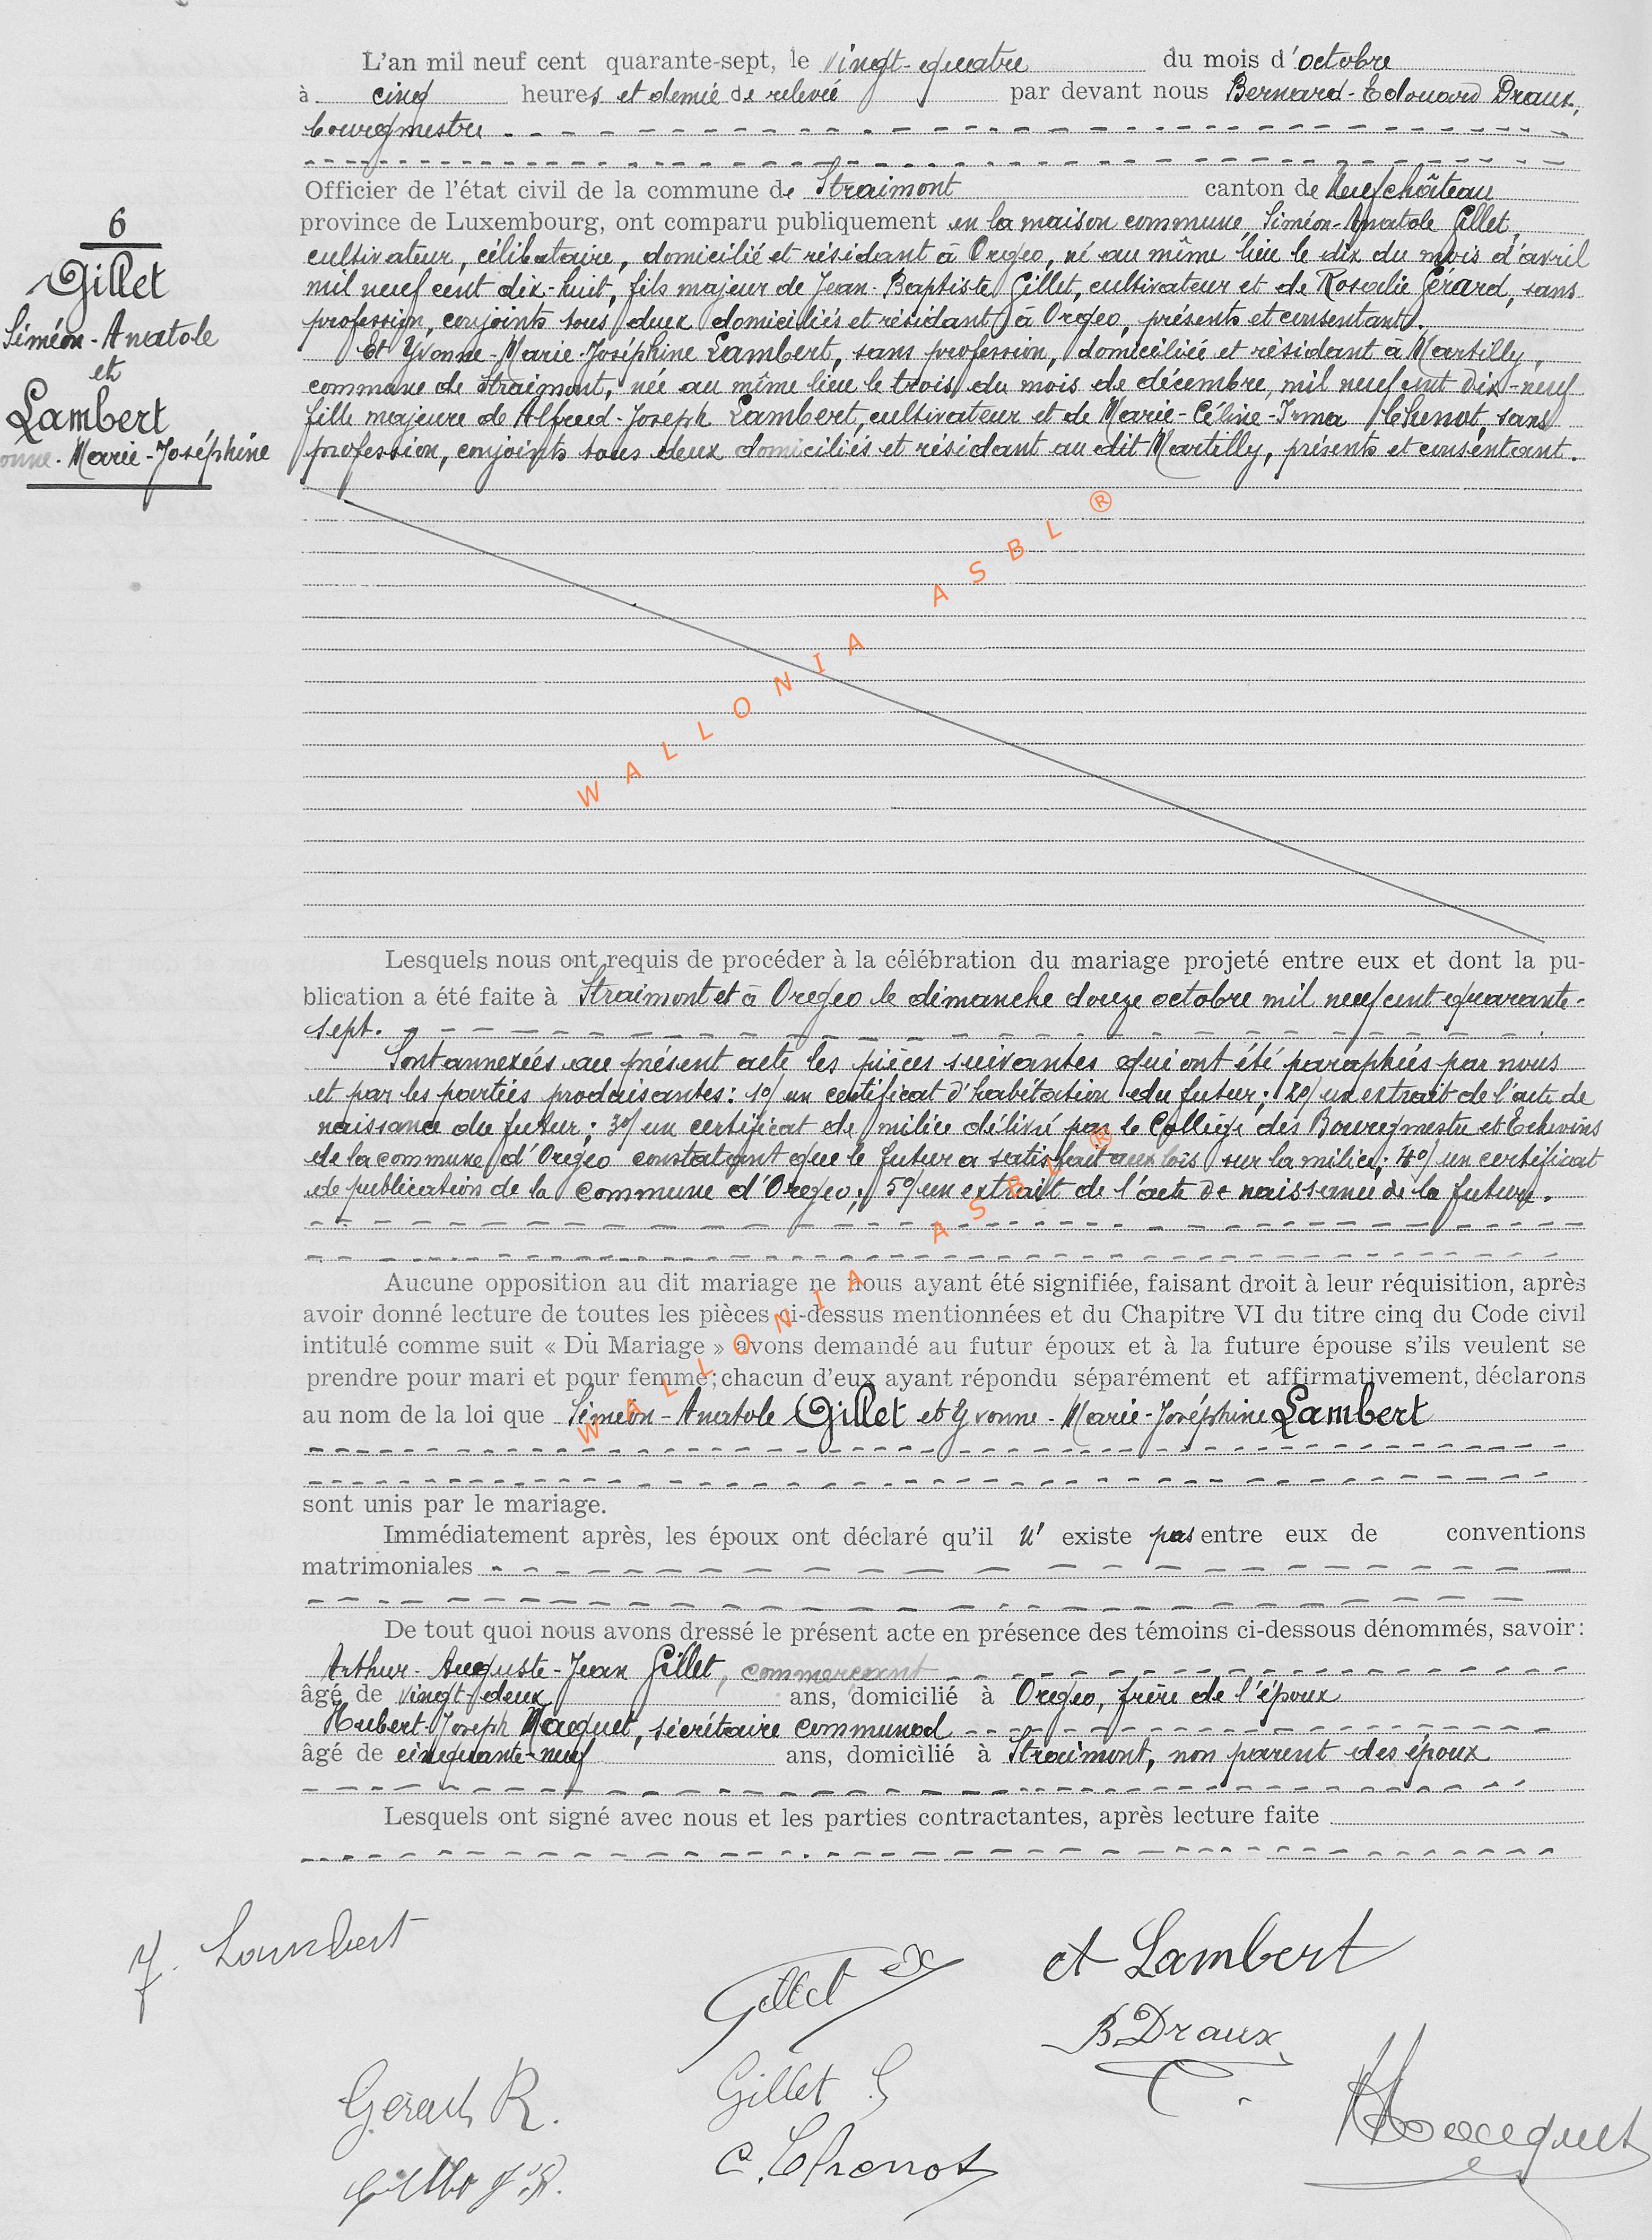 L'an mil neuf cent quarante-sept, le vingt-quatre du mois d'octobre
à cinq heures et demie de relevée par devant nous Bernard-Edouard Draux,
bourgmestre
Officier de l'état civil de la commune de Straimont canton de Neufchâteau
province de Luxembourg, ont comparu publiquement en la maison commune, Siméon-Anatole Gillet,
cultivateur, célibataire, domicilié et résidant à Orgeo, né au même lieu le dix du mois d'avril
mil neuf cent dix-huit, fils majeur de Jean-Baptiste Gillet, cultivateur et de Rosalie Gérard, sans
profession, conjoints tous deux domiciliés et résidant à Orgeo, présents et consentant.
et Yvonne-Marie-Joséphine Lambert, sans profession, domiciliée et résidant à Martilly,
commune de Straimont, née au même lieu le trois du mois de décembre, mil neuf cent dix-neuf
fille majeure de Alfred-Joseph Lambert, cultivateur et de Marie-Céline-Irma Chenot, sans
profession, conjoints tous deux domiciliés et résidant au dit Martilly, présents et consentant.
6
Gillet
Siméon-Anatole
et
Lambert
onne-Marie-Joséphine
WALLONIA ASBL ®
Lesquels nous ont requis de procéder à la célébration du mariage projeté entre eux et dont la pu-
blication a été faite à Straimont et à Orgeo le dimanche douze octobre mil neuf cent quarante-
sept.
Sont annexées au présent acte les pièces suivantes qui ont été paraphées par nous
et par les parties produisantes: 1o/ un certificat d'habitation du futur; 2o/ un extrait de l'acte de
naissance du futur; 3o/ un certificat de milice délivré par le Collège des Bourgmestre et Echevins
de la commune d'Orgeo constatant que le futur a satisfait aux lois sur la milice; 4o/ un certificat
de publication de la commune d'Orgeo; 5o/ un extrait de l'acte de naissance de la future.
WALLONIA ASBL ®
Aucune opposition au dit mariage ne nous ayant été signifiée, faisant droit à leur réquisition, après
avoir donné lecture de toutes les pièces ci-dessus mentionnées et du Chapitre VI du titre cinq du Code civil
intitulé comme suit « Du Mariage » avons demandé au futur époux et à la future épouse s'ils veulent se
prendre pour mari et pour femme; chacun d'eux ayant répondu séparément et affirmativement, déclarons
au nom de la loi que Siméon-Anatole Gillet et Yvonne-Marie-Joséphine Lambert
sont unis par le mariage.
Immédiatement après, les époux ont déclaré qu'il n' existe pas entre eux de conventions
matrimoniales
De tout quoi nous avons dressé le présent acte en présence des témoins ci-dessous dénommés, savoir:
Arthur-Auguste-Jean Gillet, commerçant
âgé de vingt-deux ans, domicilié à Orgeo, frère de l'époux
Hubert-Joseph Maquet, secrétaire communal
âgé de cinquante-neuf ans, domicilié à Straimont, non parent des époux
Lesquels ont signé avec nous et les parties contractantes, après lecture faite
Y. Lambert
Gillet
A Lambert
B Draux
Gérard R.
Gillet S
C. Chenot